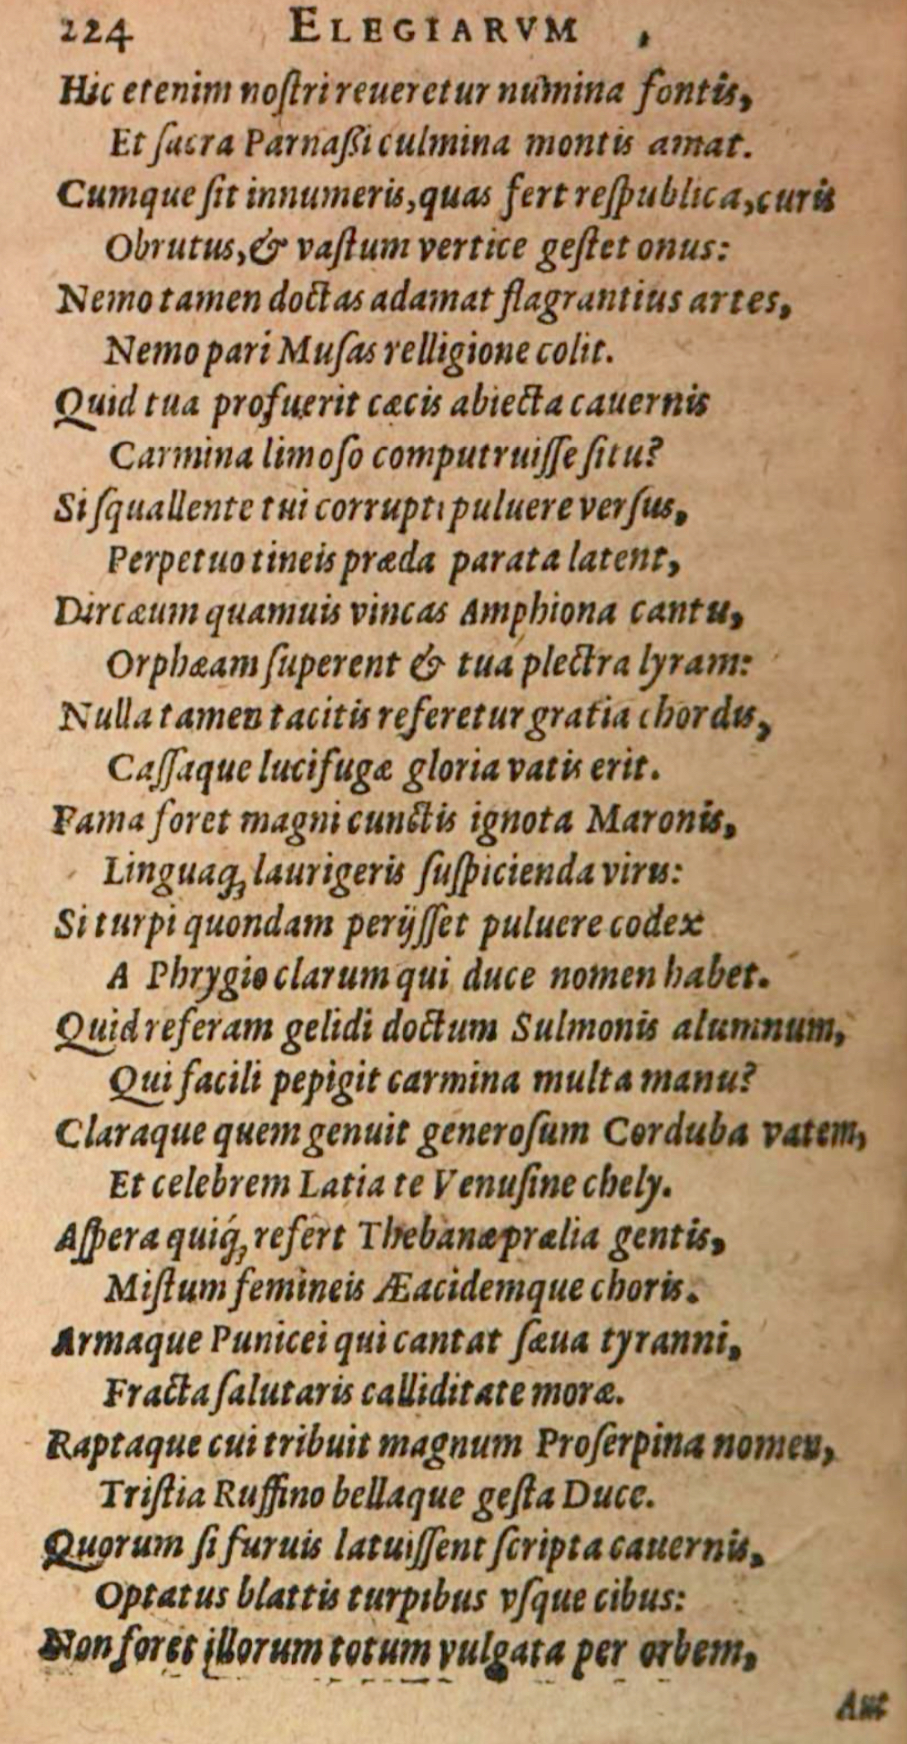 224 ELEGIARVM
Hic etenim noſtri reueretur numina fontis,
Et ſacra Parnaßi culmina montis amat.
Cumque ſit innumeris, quas fert reſpublica, curis
Obrutus, & vaſtum vertice geſtet onus:
Nemo tamen doctas adamat flagrantius artes,
Nemo pari Muſas relligione colit.
Quid tua profuerit cæcis abiecta cauernis
Carmina limoſo computruiſſe ſitu?
Si ſquallente tui corrupti puluere verſus,
Perpetuo tineis præda parata latent,
Dircæum quamuis vincas Amphiona cantu,
Orphæam ſuperent & tua plectra lyram:
Nulla tamen tacitis referetur gratia chordis,
Caſſaque lucifugæ gloria vatis erit.
Fama foret magni cunctis ignota Maronis,
Linguaq́; laurigeris ſuſpicienda viris:
Si turpi quondam perijſſet puluere codex
A Phrygio clarum qui duce nomen habet.
Quid referam gelidi doctum Sulmonis alumnum,
Qui facili pepigit carmina multa manu?
Claraque quem genuit generoſum Corduba vatem,
Et celebrem Latia te Venuſine chely.
Aſpera quiq́; refert Thebanæ prælia gentis,
Miſtum femineis Æacidemque choris.
Armaque Punicei qui cantat ſæua tyranni,
Fracta ſalutaris calliditate moræ.
Raptaque cui tribuit magnum Proſerpina nomen,
Triſtia Ruffino bellaque geſta Duce.
Quorum ſi furuis latuiſſent ſcripta cauernis,
Optatus blattis turpibus vſque cibus:
Non foret illorum totum vulgata per orbem,
Aut